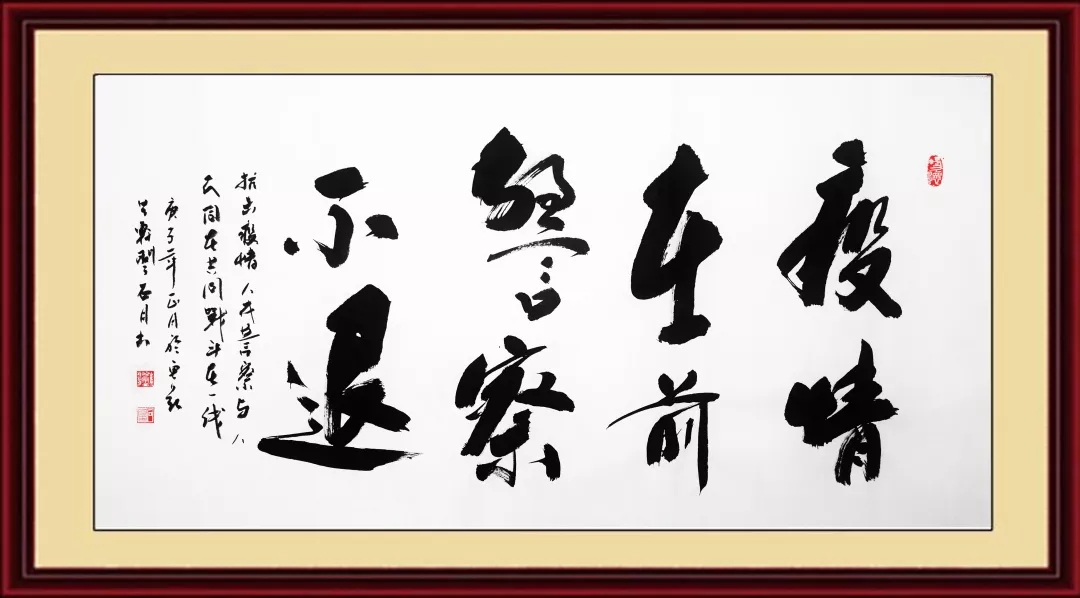 疫情
在前
警察
不退
抗击疫情人民警察与人
民同在共同战斗在一线
庚子年正月于